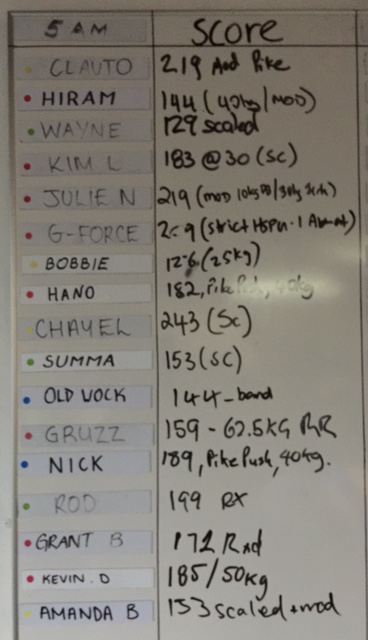 5 AM SCORE
CLAUTO 219 And Pike
HIRAM 144 (40kg/MOD)
WAYNE 129 scaled
KIM L 183 @30 (SC)
JULIE N 219 (mod
G-FORCE (strict HSPU-1 Abmat)
BOBBIE 126 (25kg)
HANO 182, Pike Push, 40kg
CHAYEL 243 (Sc)
SUMMA 153 (SC)
OLD VOCK 144-band
GRUZZ 159 - 62.5KG RR
NICK 189, Pike Push, 40kg.
ROD 199 RX
GRANT B 172 Rxd
KEVIN. D 185/50kg
AMANDA B 153 scaled + mod